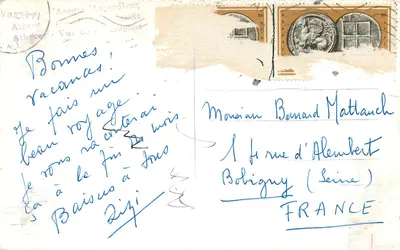 Bonnes
vacances!
Je fais un
beau voyage.
Je vous raconterai
ça à la fin du mois.
Baisers à tous
Zizi
Monsieur Bernard Mattauch
14 rue d'Alembert
Bobigny (Seine)
FRANCE